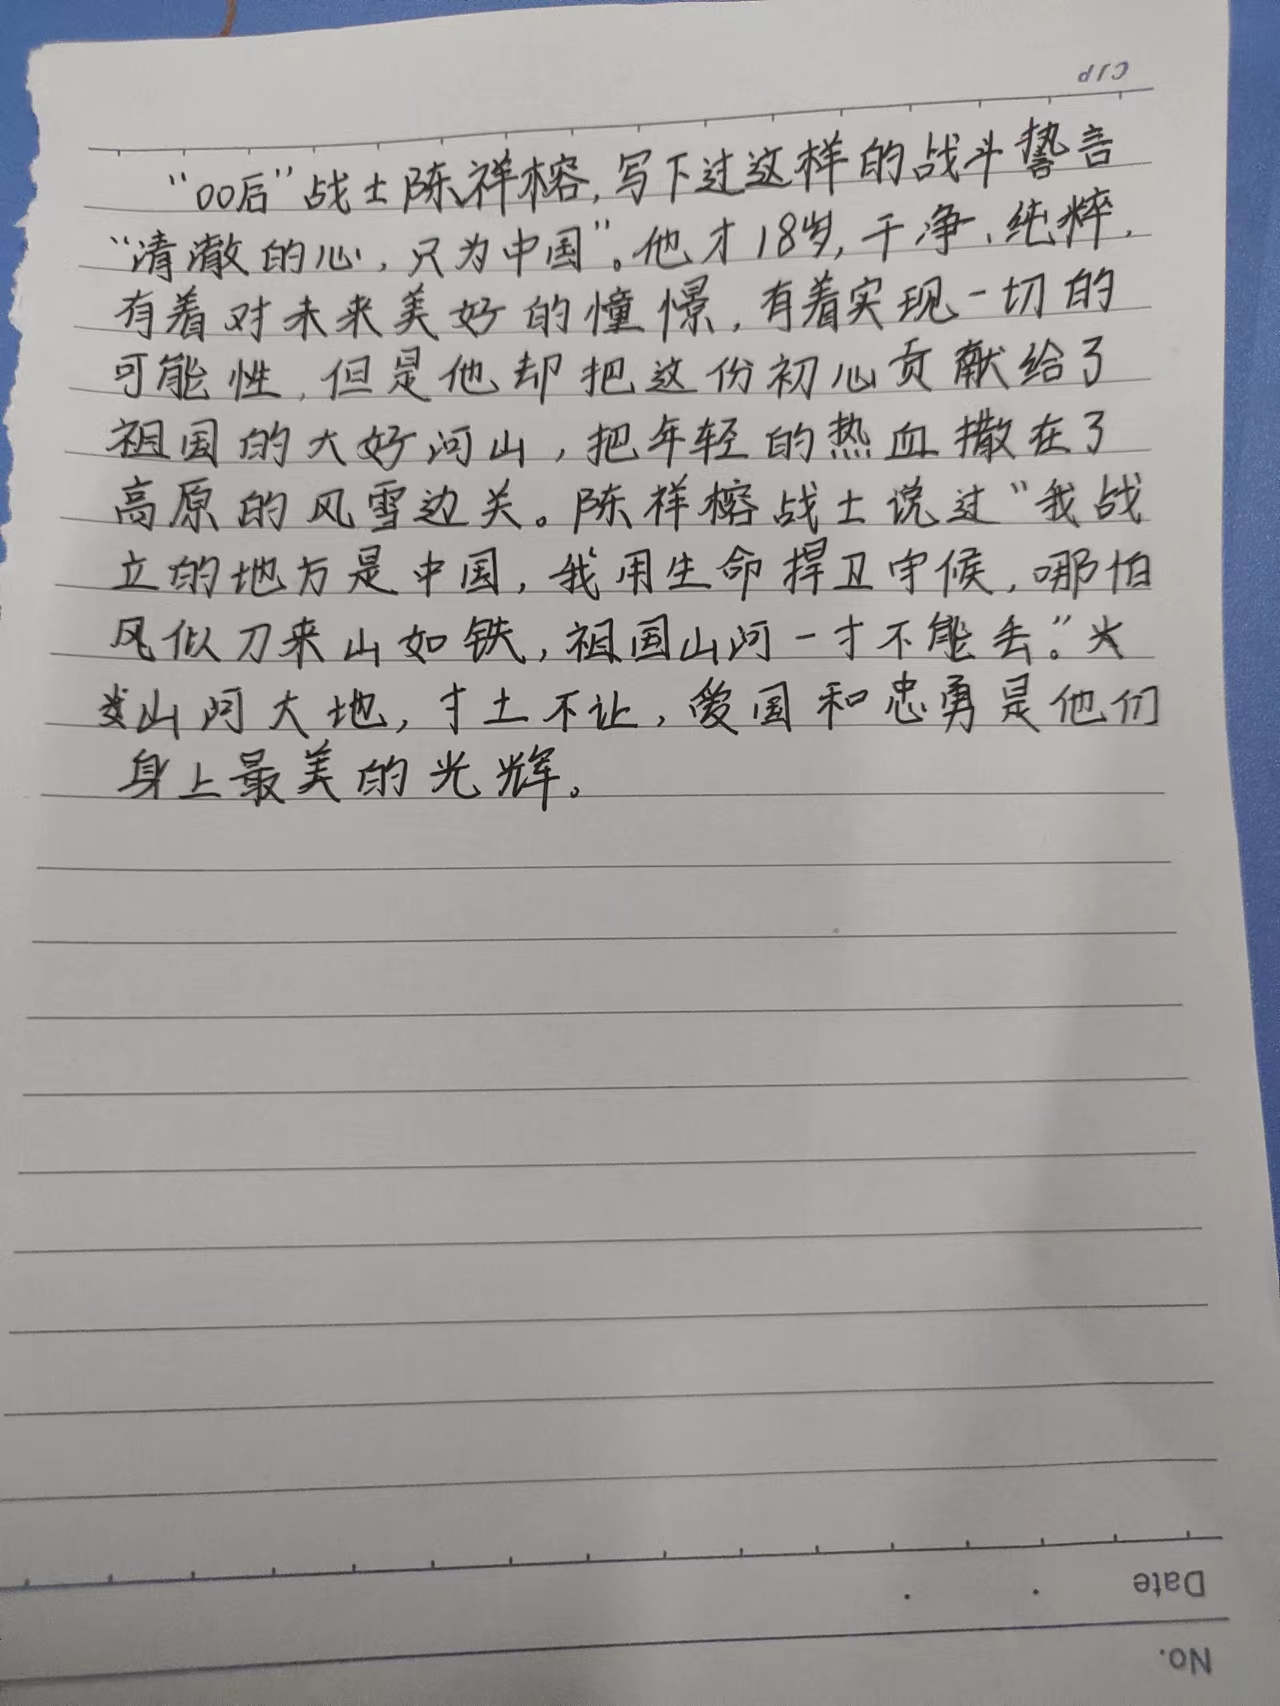 C1P
“00后”战士陈祥榕，写下过这样的战斗誓言
“清澈的心，只为中国”。他才18岁，干净、纯粹，
有着对未来美好的憧憬，有着实现一切的
可能性，但是他却把这份初心贡献给了
祖国的大好河山，把年轻的热血撒在了
高原的风雪边关。陈祥榕战士说过“我战
立的地方是中国，我用生命捍卫守候，哪怕
风似刀来山如铁，祖国山河一寸不能丢。”
山河大地，寸土不让，爱国和忠勇是他们
身上最美的光辉。
Date
No.